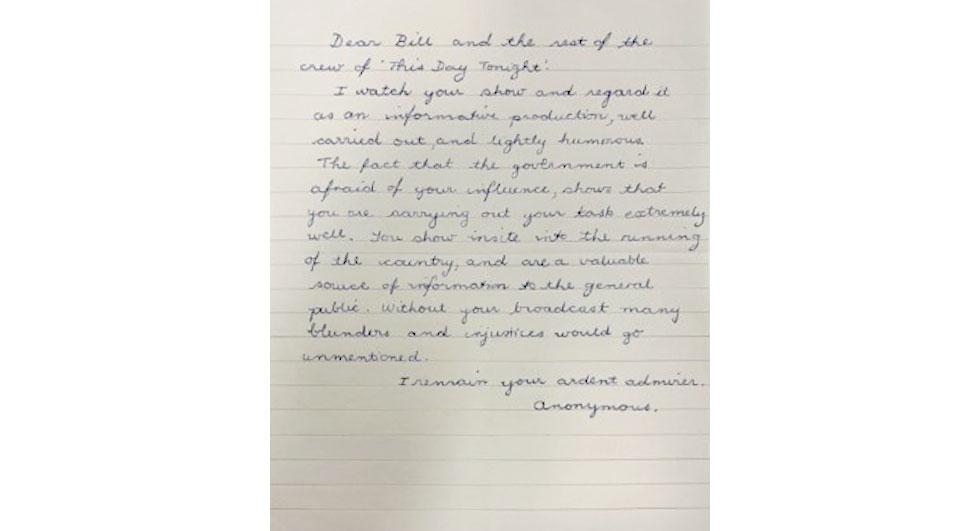 Dear Bill and the rest of the
crew of 'This Day Tonight'.
I watch your show and regard it
as an informative production, well
carried out, and lightly humorous.
The fact that the government is
afraid of your influence, shows that
you are carrying out your task extremely
well. You show insite into the running
of the country, and are a valuable
source of information to the general
public. Without your broadcast many
blunders and injustices would go
unmentioned.
I remain your ardent admirer.
Anonymous.